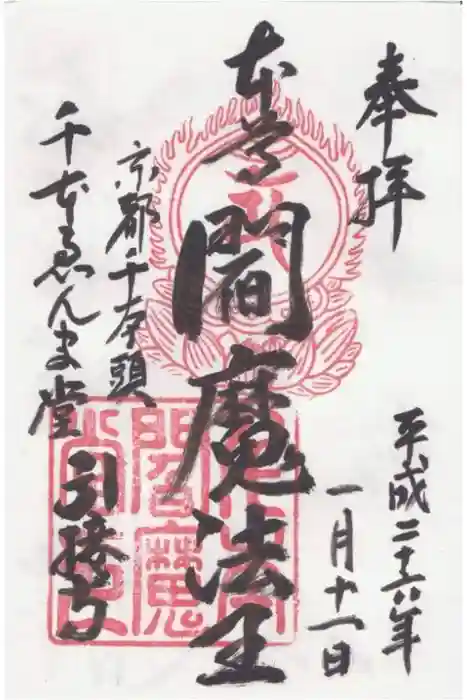 奉拝
平成二十六年
一月十一日
本尊
閻魔法王
京都千本頭
千本ゑんま堂
引接寺